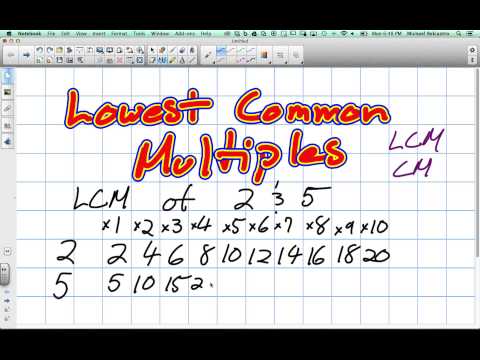 Notebook File Edit View Insert Format
Mon 6:10 PM Michael
Untitled
Lowest Common
Multiples
LCM
CM
LCM of 2 & 5
×1 ×2 ×3 ×4 ×5 ×6 ×7 ×8 ×9 ×10
2 2 4 6 8 10 12 14 16 18 20
5 5 10 15 2